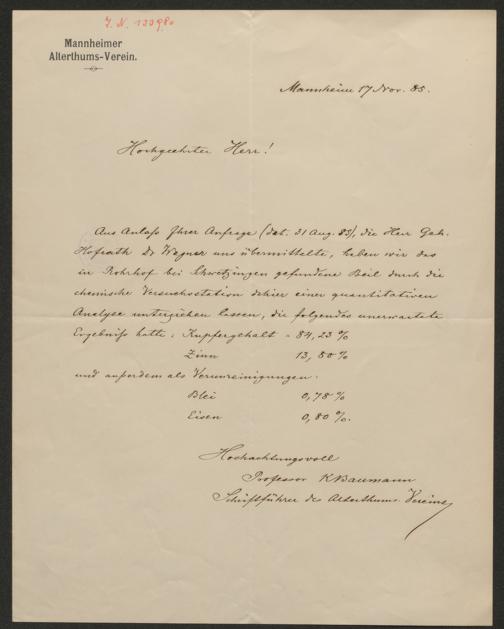 J. N. 133980
Mannheimer
Alterthums-Verein.
Mannheim 17 Nov. 85.
Hochgeehrter Herr!
Aus Anlaß Ihrer Anfrage (dat. 31 Aug. 83), die Herr Geh.
Hofrath Dr Wagner uns übermittelte, haben wir das
in Rohrhof bei Schwetzingen gefundene Beil durch die
chemische Versuchsstation dahier einer quantitativen
Analyse unterziehen lassen, die folgendes unerwartete
Ergebniß hatte: Kupfergehalt = 84,23 %
Zinn 13,50 %
und außerdem als Verunreinigungen.
Blei 0,78 %
Eisen 0,80 %.
Hochachtungsvoll
Professor K Baumann
Schriftführer des Alterthums-Vereins